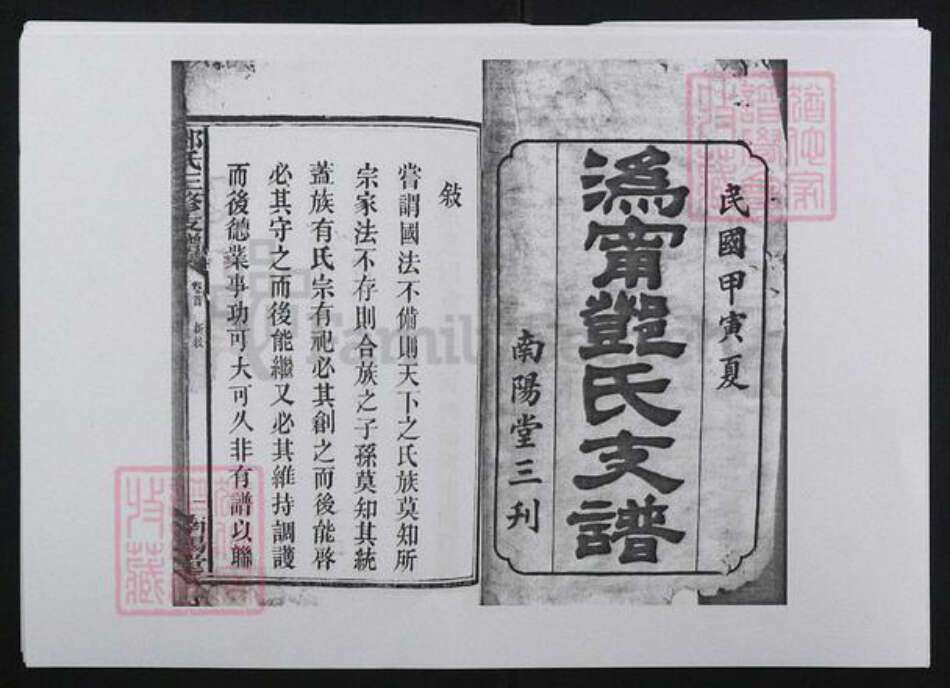 民國甲寅夏
溈甯鄧氏支譜
南陽堂三刋
敍
嘗謂國法不備則天下之氏族莫知所
宗家法不存則合族之子孫莫知其統
蓋族有氏宗有祀必其創之而後能啓
必其守之而後能繼又必其維持調護
而後德業事功可大可久非有譜以聯
鄧氏三修支譜
卷首
新敍
一
南陽堂